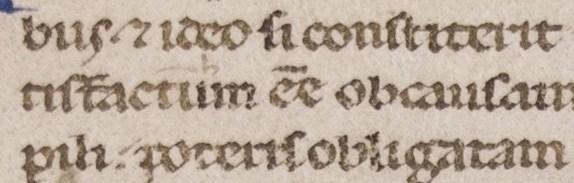 bus ⁊ ideo si constiterit
tisf̄actum ēe ob causam
pili. poteris obligatam